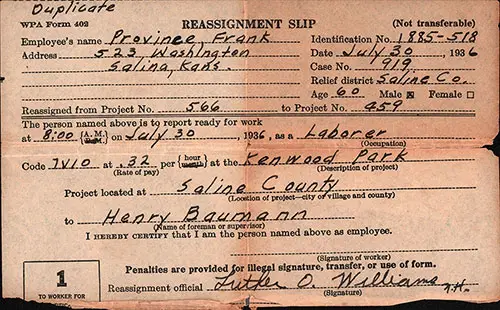 Duplicate
WPA Form 402 REASSIGNMENT SLIP (Not transferable)
Employee's name Province, Frank Identification No. 1885-518
Address 523 Washington Date July 30, 1936
Salina, Kans. Case No. 919
Relief district Saline Co.
Age 60 Male Female
Reassigned from Project No. 566 to Project No. 459
The person named above is to report ready for work
at 8:00 {A.M. on July 30, 1936, as a Laborer
(Occupation)
Code IV10 at .32 per {hour month} at the Kenwood Park
(Rate of pay) (Description of project)
Project located at Saline County
(Location of project—city or village and county)
to Henry Baumann
(Name of foreman or supervisor)
I HEREBY CERTIFY that I am the person named above as employee.
(Signature of worker)
1
TO WORKER FOR
Penalties are provided for illegal signature, transfer, or use of form.
Reassignment official Luther O. Williams T.H.
(Signature)